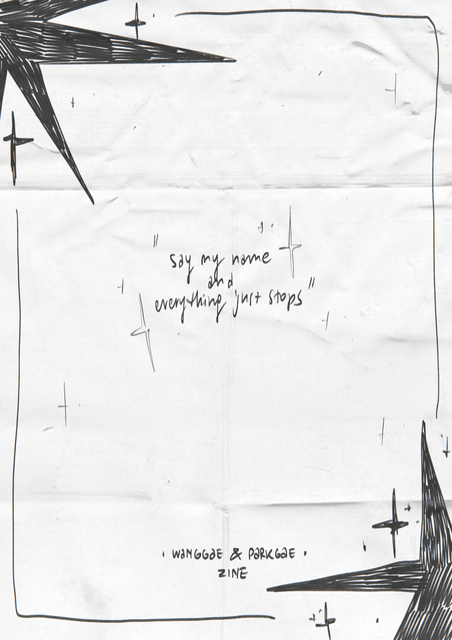 "say my name
and
everything just stops"
• WANGGAE & PARKGAE •
ZINE